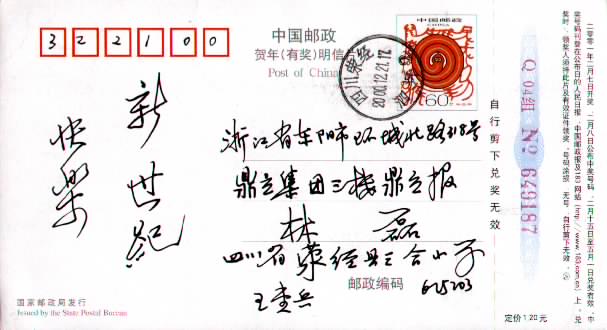 322100
中国邮政
贺年(有奖)明信片
Post of China
中国邮政
60分
四川荥经
2000.12.21.17
新世纪
快乐
浙江省东阳市环城北路318号
鼎立集团三楼鼎立报
林 磊
四川省荥经县三合小学
邮政编码 625203
国家邮政局发行
Issued by the State Postal Bureau
定价1.20元
自行剪下兑奖无效
Q 04组 No 649187
二零零一年二月七日开奖,二月八日公布中奖号码,二月十五日至五月一日兑奖有效。中
奖号码刊登在公布日的人民日报、中国邮政报及183网站(http://www.183.com.cn)上。兑
奖时,领奖人须将此片及有效证件领奖。号码涂损无号,自行剪下无效。